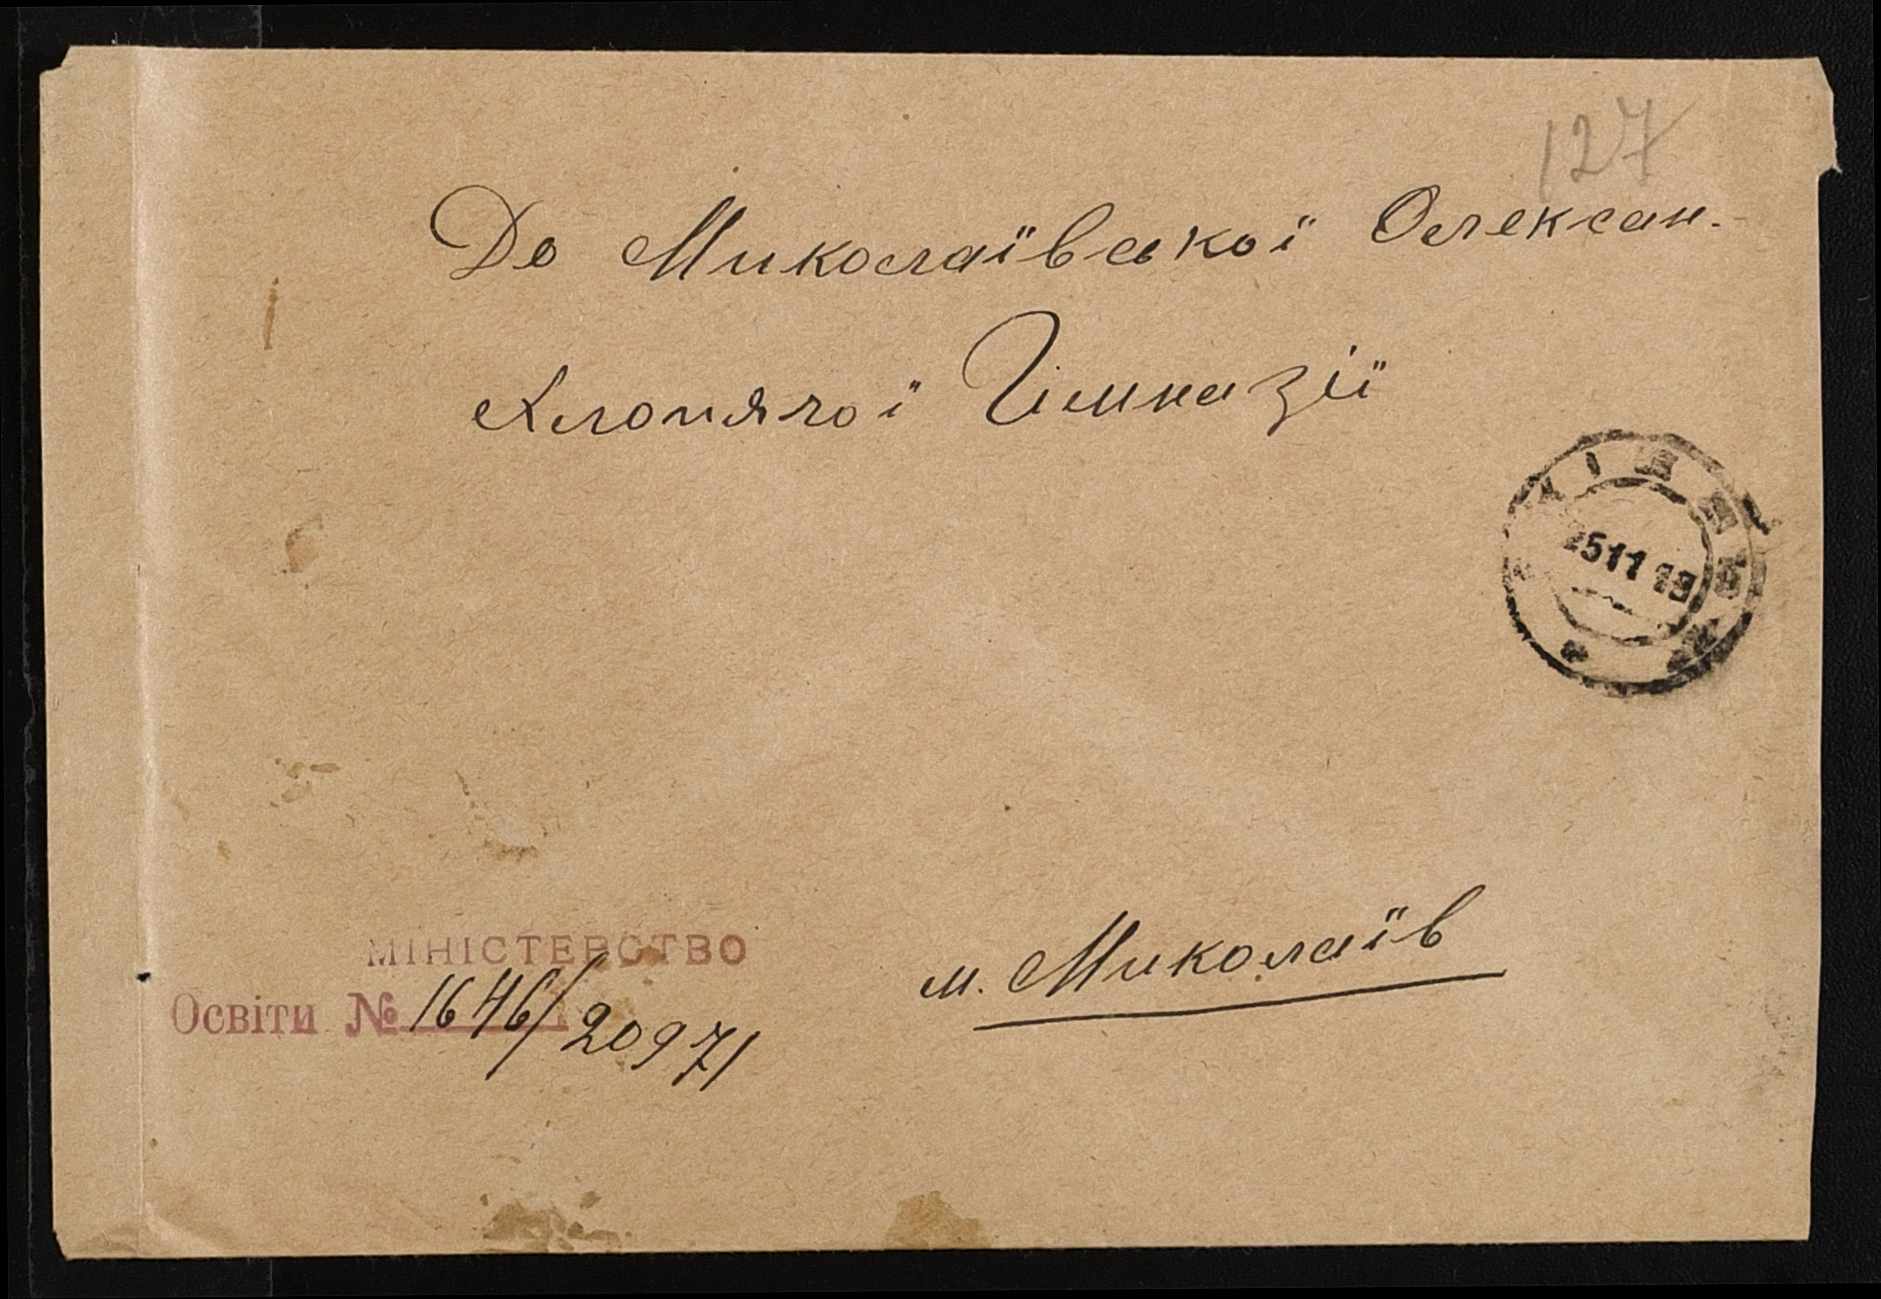 127
До Миколаївської Олексан.
Хлопячої Гімназії
25 11 19
МІНІСТЕРСТВО
Освіти № 1646/20971
м. Миколаїв